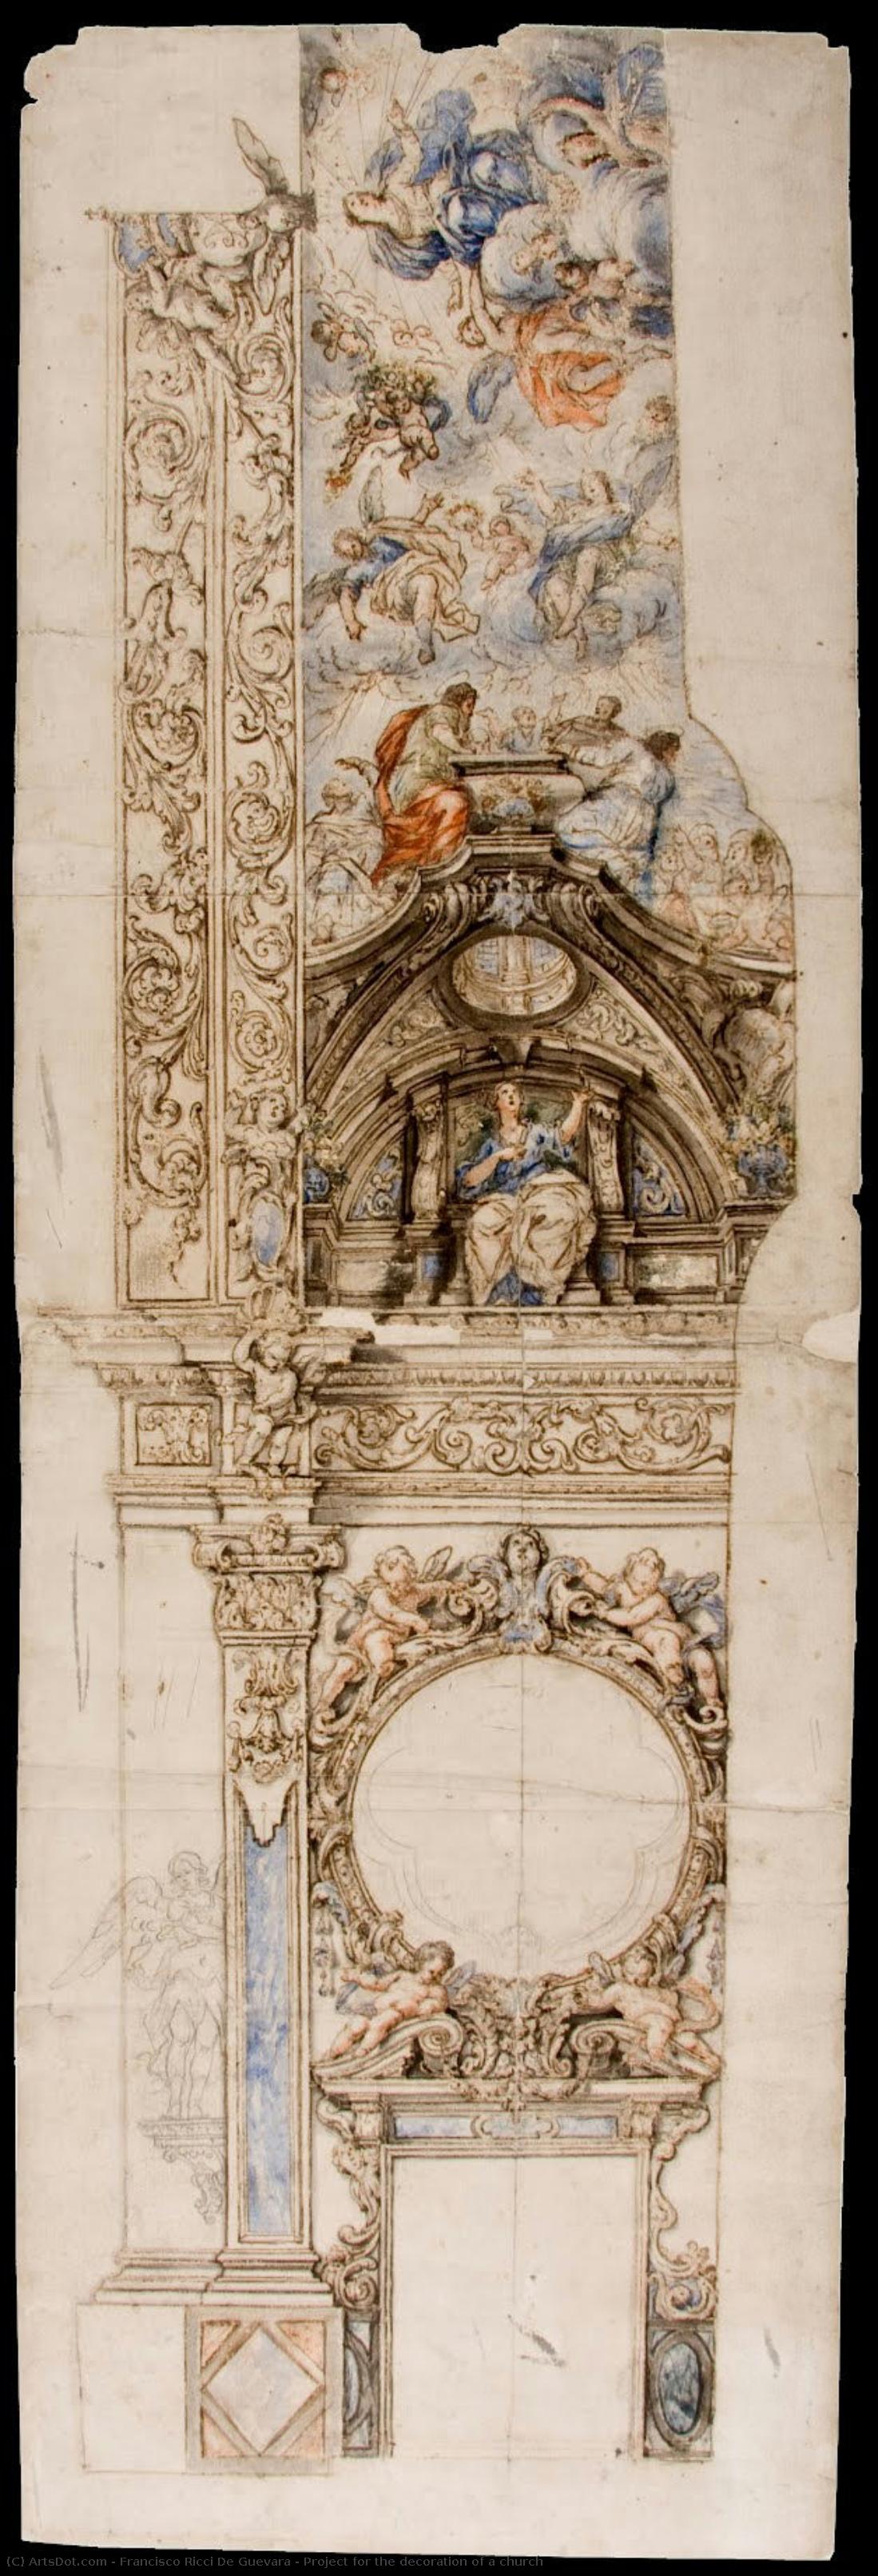 (C) ArtsDot.com - Francisco Ricci De Guevara - Project for the decoration of a church